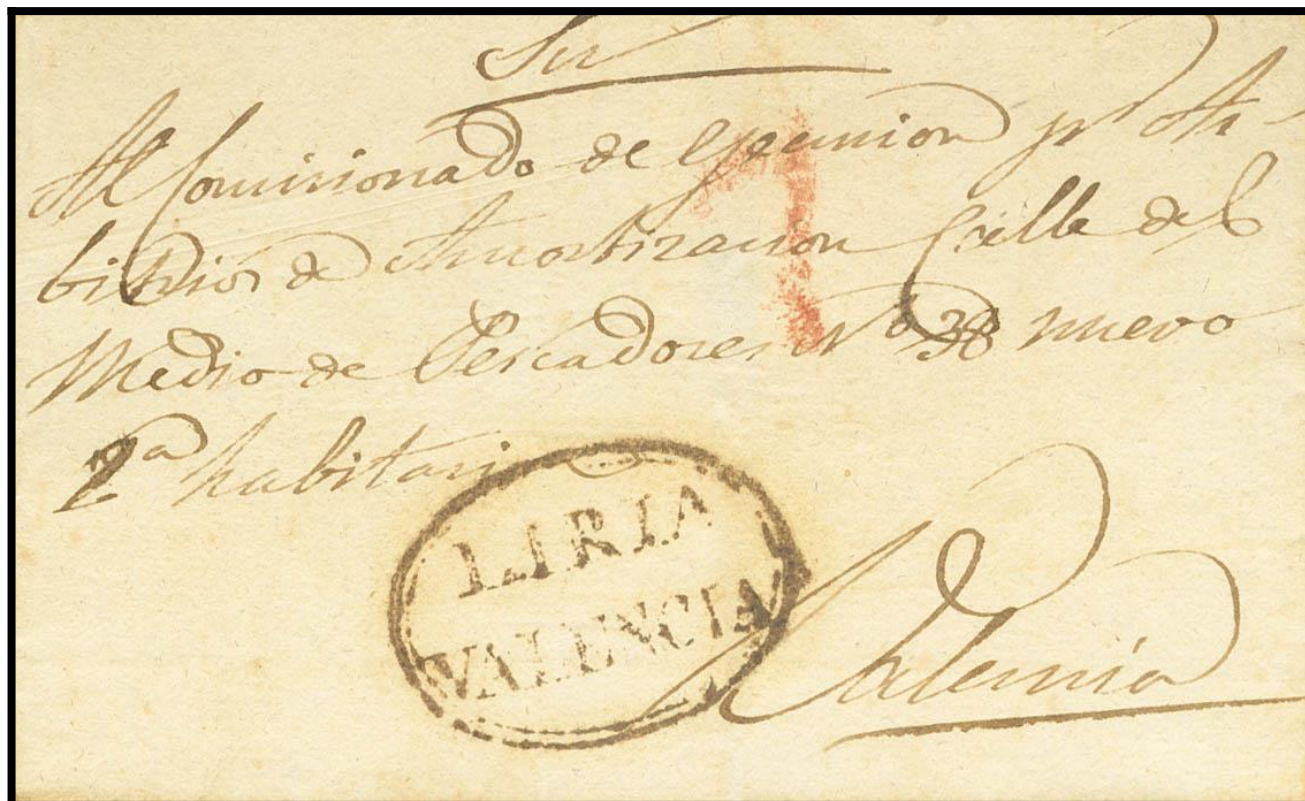 Al Comisionado de Reunion pr Ar-
bitrios de Amortizacion Calle del
Medio de Pescadores no 38 nuevo
2a habitacion
LIRIA
VALENCIA
Valencia